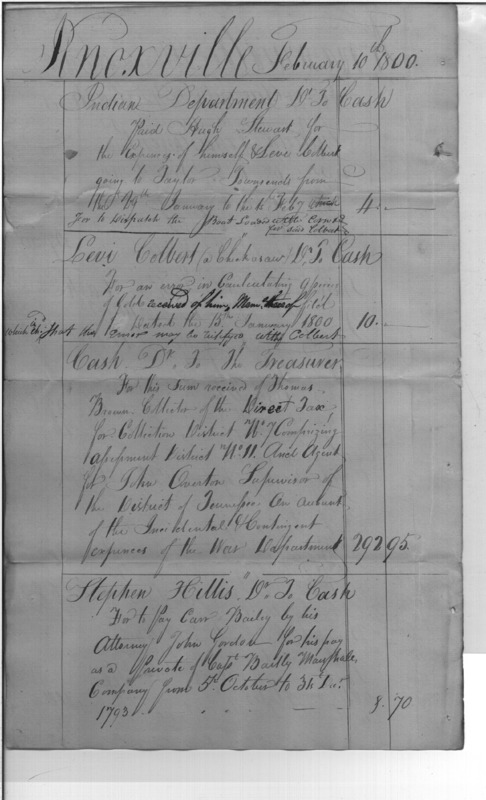 Knoxville February 10th 1800.
Indian Department Dr To Cash
Paid Hugh Stewart for
the expences of himself & Levi Colbert
going to Taylor Townsends from
the 24th January to the 6 Feby
for to Dispatch the Boat Loads with
for said Colbert 4. -
Levi Colbert (a Chickasaw) Dr To Cash
For an error in Caulculating a
of received of him, Mem. thereof
Dated the 15th January 1800 10. -
that this error may be rectifyed with Colbert
Cash Dr To The Treasurer
For this Sum received of Thomas
Brown Collector of the Direct Tax,
for Collection District No 7 Comprizing
assessment District No 11. And Agent
for John Overton Supervisor of
the District of Tennessee On account
of the Incidental & Contingent
expences of the War Department 292 95.
Stephen Hillis Dr To Cash
For to pay Carr Bailey by his
Attorney John Gordon for his pay
as a Private of Capt
Company from 5th October to
1793 8. 70